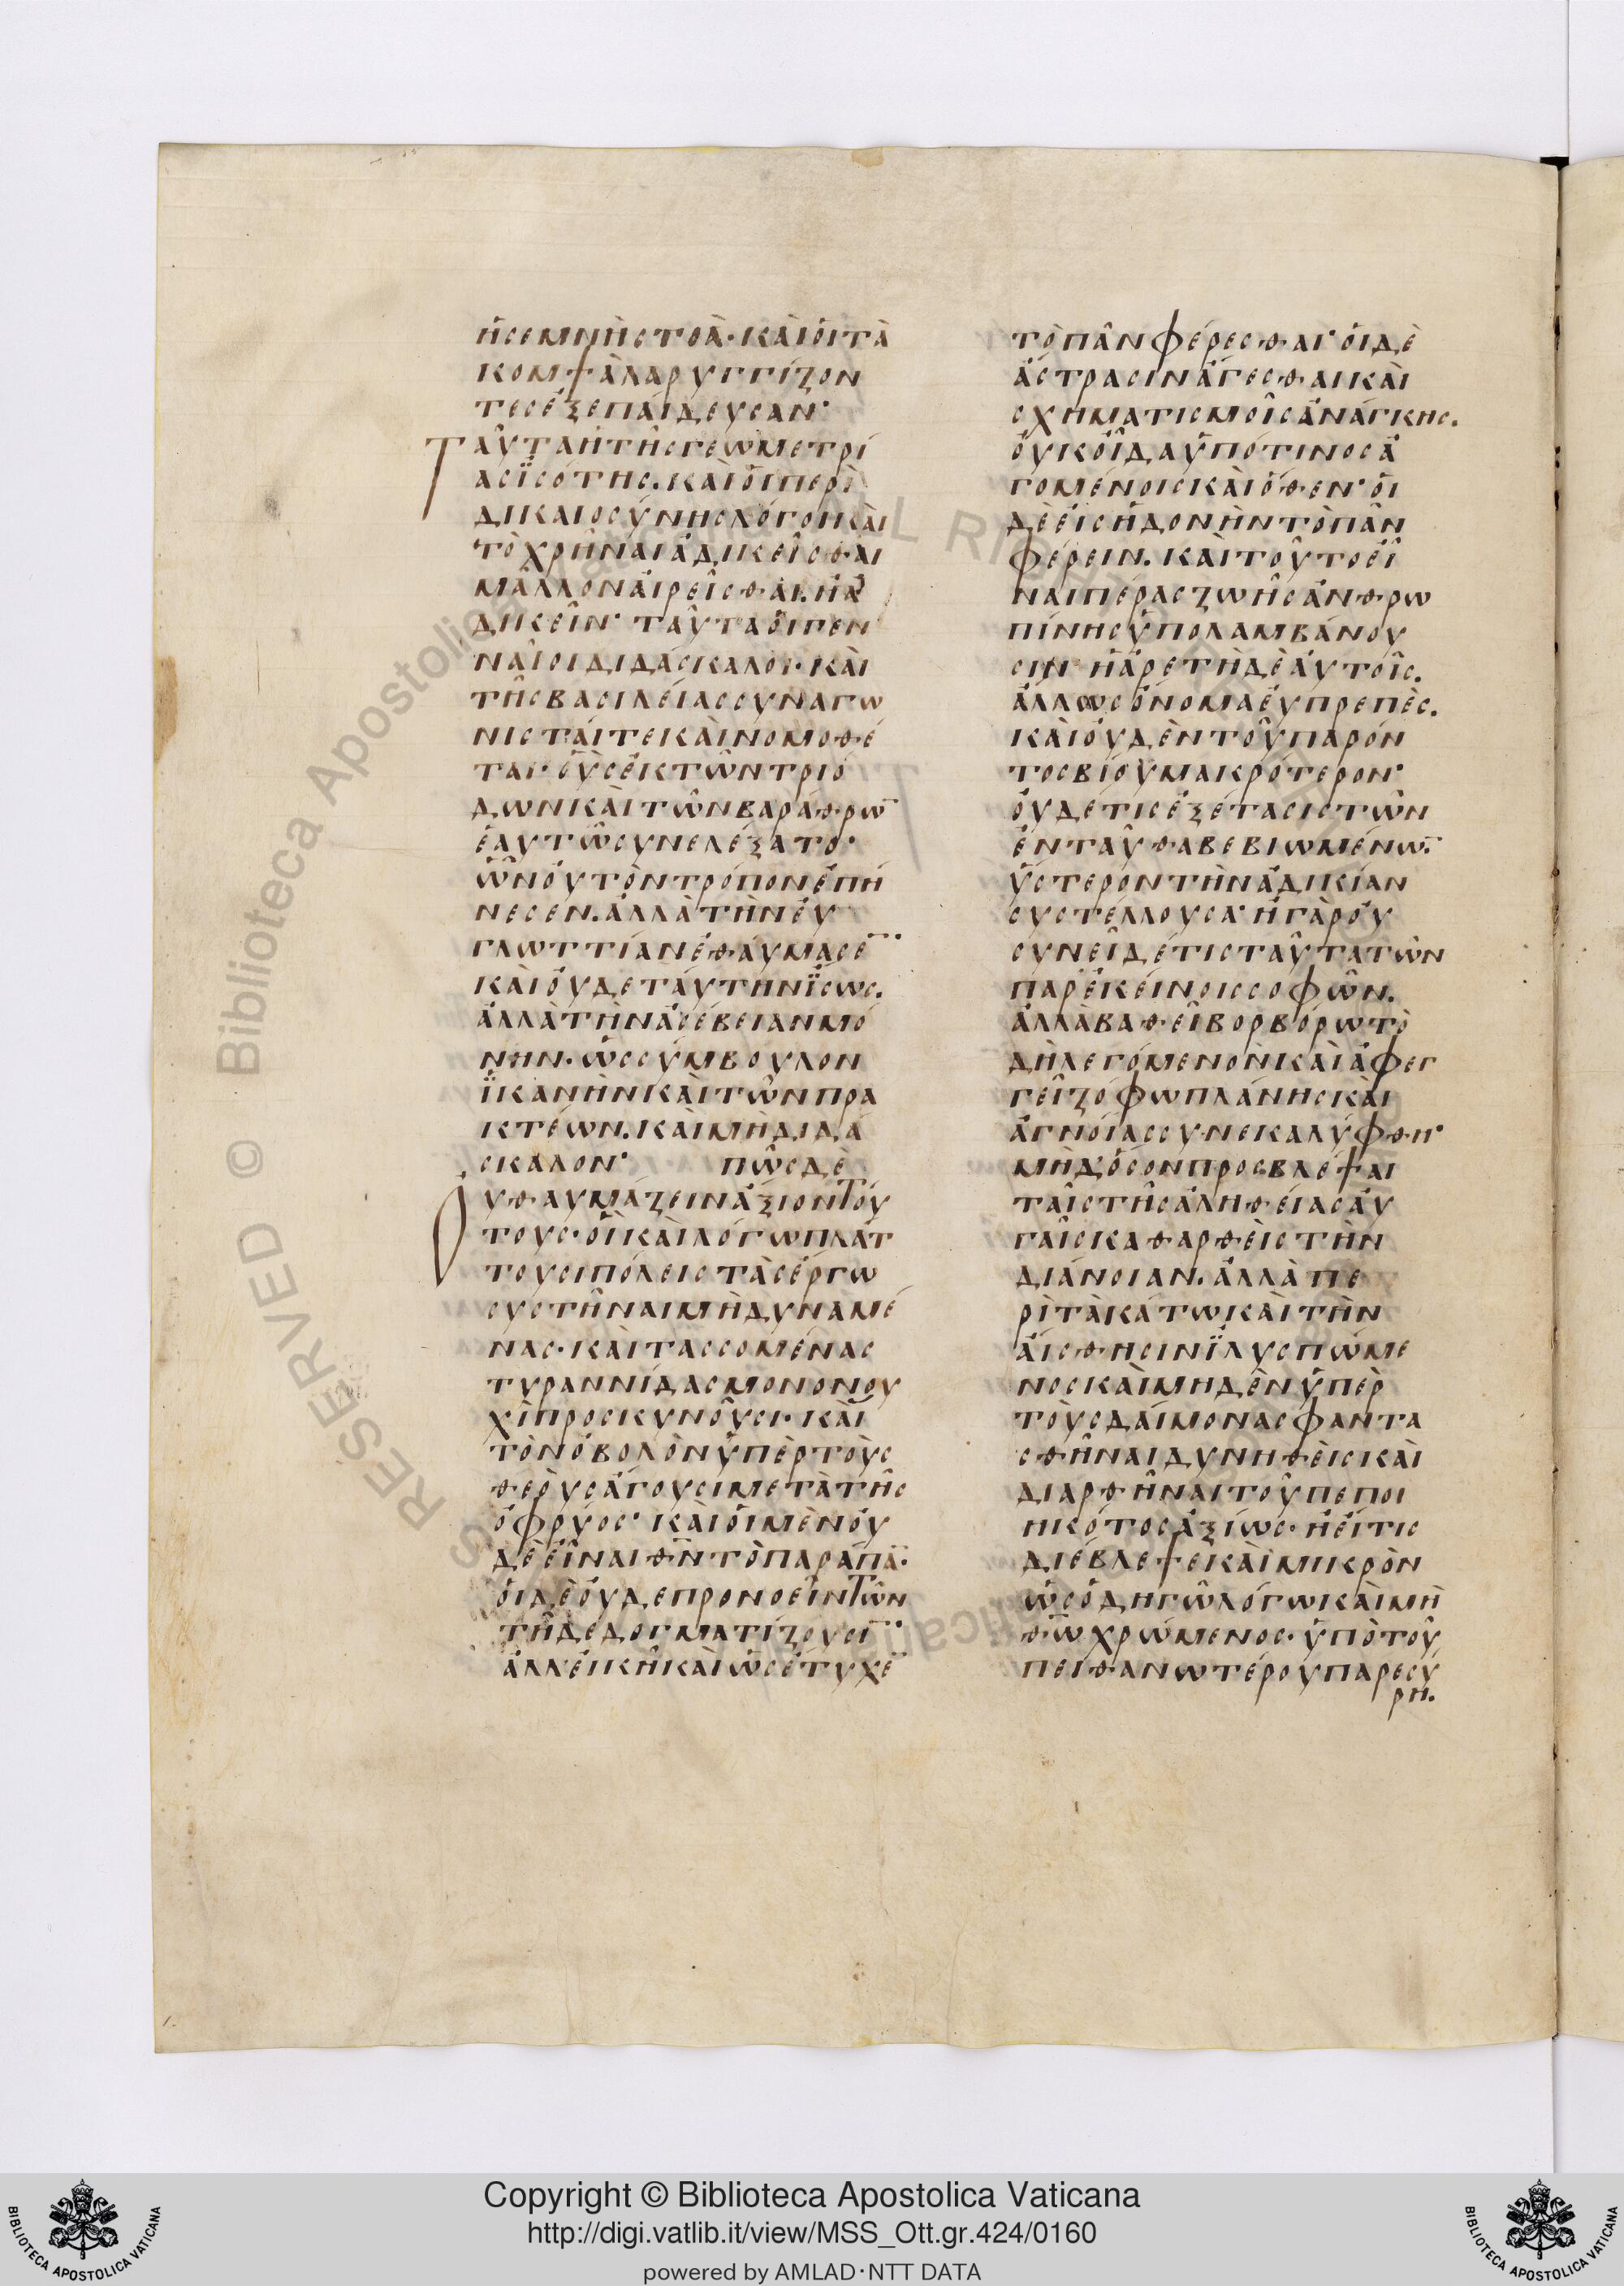 ἡσεμνὴστοὰ· καὶοἱτὰ
κομψὰλαρυγγίζον
τεσἐξεπαίδευσαν·
Ταῦταἡτῆσγεωμετρί
ασϊσότησ. καὶοἱπερὶ
δικαιοσύνησλόγοικαὶ
τὸχρῆναιἀδικεῖσθαι
μᾶλλοναἱρεῖσθαι. ἢἀ
δικεῖν· ταῦταὁιγεν
ναῖοιδιδάσκαλοι· καὶ
τῆσβασιλείασσυναγω
νισταίτεκαὶνομοθέ
ται· οὓσἐκτῶντριό
δωνκαὶτῶνβαράθρω̅
ἑαυτῶσυνελέξατο·
ὧνοὐτὸντρόπονἐπή
νεσεν. ἀλλὰτὴνεὐ
γλωττίανἐθαύμασε̅·
καὶοὐδεταύτηνἴσωσ.
ἀλλὰτὴνἀσέβειανμό
νην· ὡσσύμβουλον
ϊκανὴνκαὶτῶνπρα
κτέων. καὶμὴδιδά
σκαλον· πῶσδὲ
Οὐθαυμάζεινἄξιοντού
τουσ· οἳκαὶλόγωπλάτ
τουσιπόλειστὰσἔργω
συστῆναιμὴδυναμέ
νασ· καὶτασσομένασ
τυραννίδασμονονου
χὶπροσκυνοῦσι· καὶ
τὸνὀβολὸνὑπὲρτοὺσ
θεοὺσἄγουσιμετὰτῆσ
ὀφρύοσ· καὶοἱμὲνοὐ
δὲεἶναιθ̅ν̅τὸπαράπα̅·
ὁιδὲοὐδεπρονοεῖντῶν
τῆδεδογματίζουσι̅·
ἀλλ'εἰκῆκαὶὡσἔτυχε̅
τὸπᾶνφέρεσθαι· οἱδὲ
ἄστρασινἄγεσθαικαὶ
σχηματισμοῖσἀνάγκησ.
οὐκοἶδαὑπότινοσἀ
γομένοισκαὶὅθεν· οἱ
δὲεἰσἡδονὴντὸπᾶν
φέρειν. καὶτοῦτοεἶ
ναιπέρασζωῆσἀνθρω
πίνησὑπολαμβάνου
σιν· ἡἀρετὴδὲαὐτοῖσ.
ἄλλωσὄνομαεὐπρεπὲσ.
καὶοὐδὲντοῦπαρόν
τοσβίουμακρότερον·
οὐδετισἐξέτασιστῶν
ἐνταῦθαβεβιωμένω̅·
ὕστεροντὴνἀδικίαν
συστέλλουσα· ἢγὰροὐ
συνεῖδέτισταῦτατῶν
παρ'ἐκείνοισσοφῶν.
ἀλλὰβαθεῖβορβόρωτὸ
δὴλεγόμενονκαὶἀφεγ
γεῖζόφωπλάνησκαὶ
ἀγνοίασσυνεκαλύφθη·
μὴδ'ὅσονπροσβλέψαι
ταῖστῆσἀληθείασαὐ
γαῖσκαθαρθεὶστὴν
διάνοιαν. ἀλλὰπε
ρὶτὰκάτωκαὶτὴν
αἴσθησινϊλυσπώμε
νοσκαὶμηδὲνὑπὲρ
τοὺσδαίμονασφαντα
σθῆναιδυνηθεὶσκαὶ
διαρθῆναιτοῦπεποι
ηκότοσἀξίωσ· ἢεἴτισ
διέβλεψεκαὶμικρὸν
ὡσὁδηγῶλόγωκαὶμὴ
θ̅ω̅χρώμενοσ· ὑπὸτοῦ
πειθανωτέρουπαρεσύ
ρη.
Copyright © Biblioteca Apostolica Vaticana
http://digi.vatlib.it/view/MSS_Ott.gr.424/0160
powered by AMLAD·NTT DATA
BIBLIOTECA APOSTOLICA VATICANA
BIBLIOTECA APOSTOLICA VATICANA